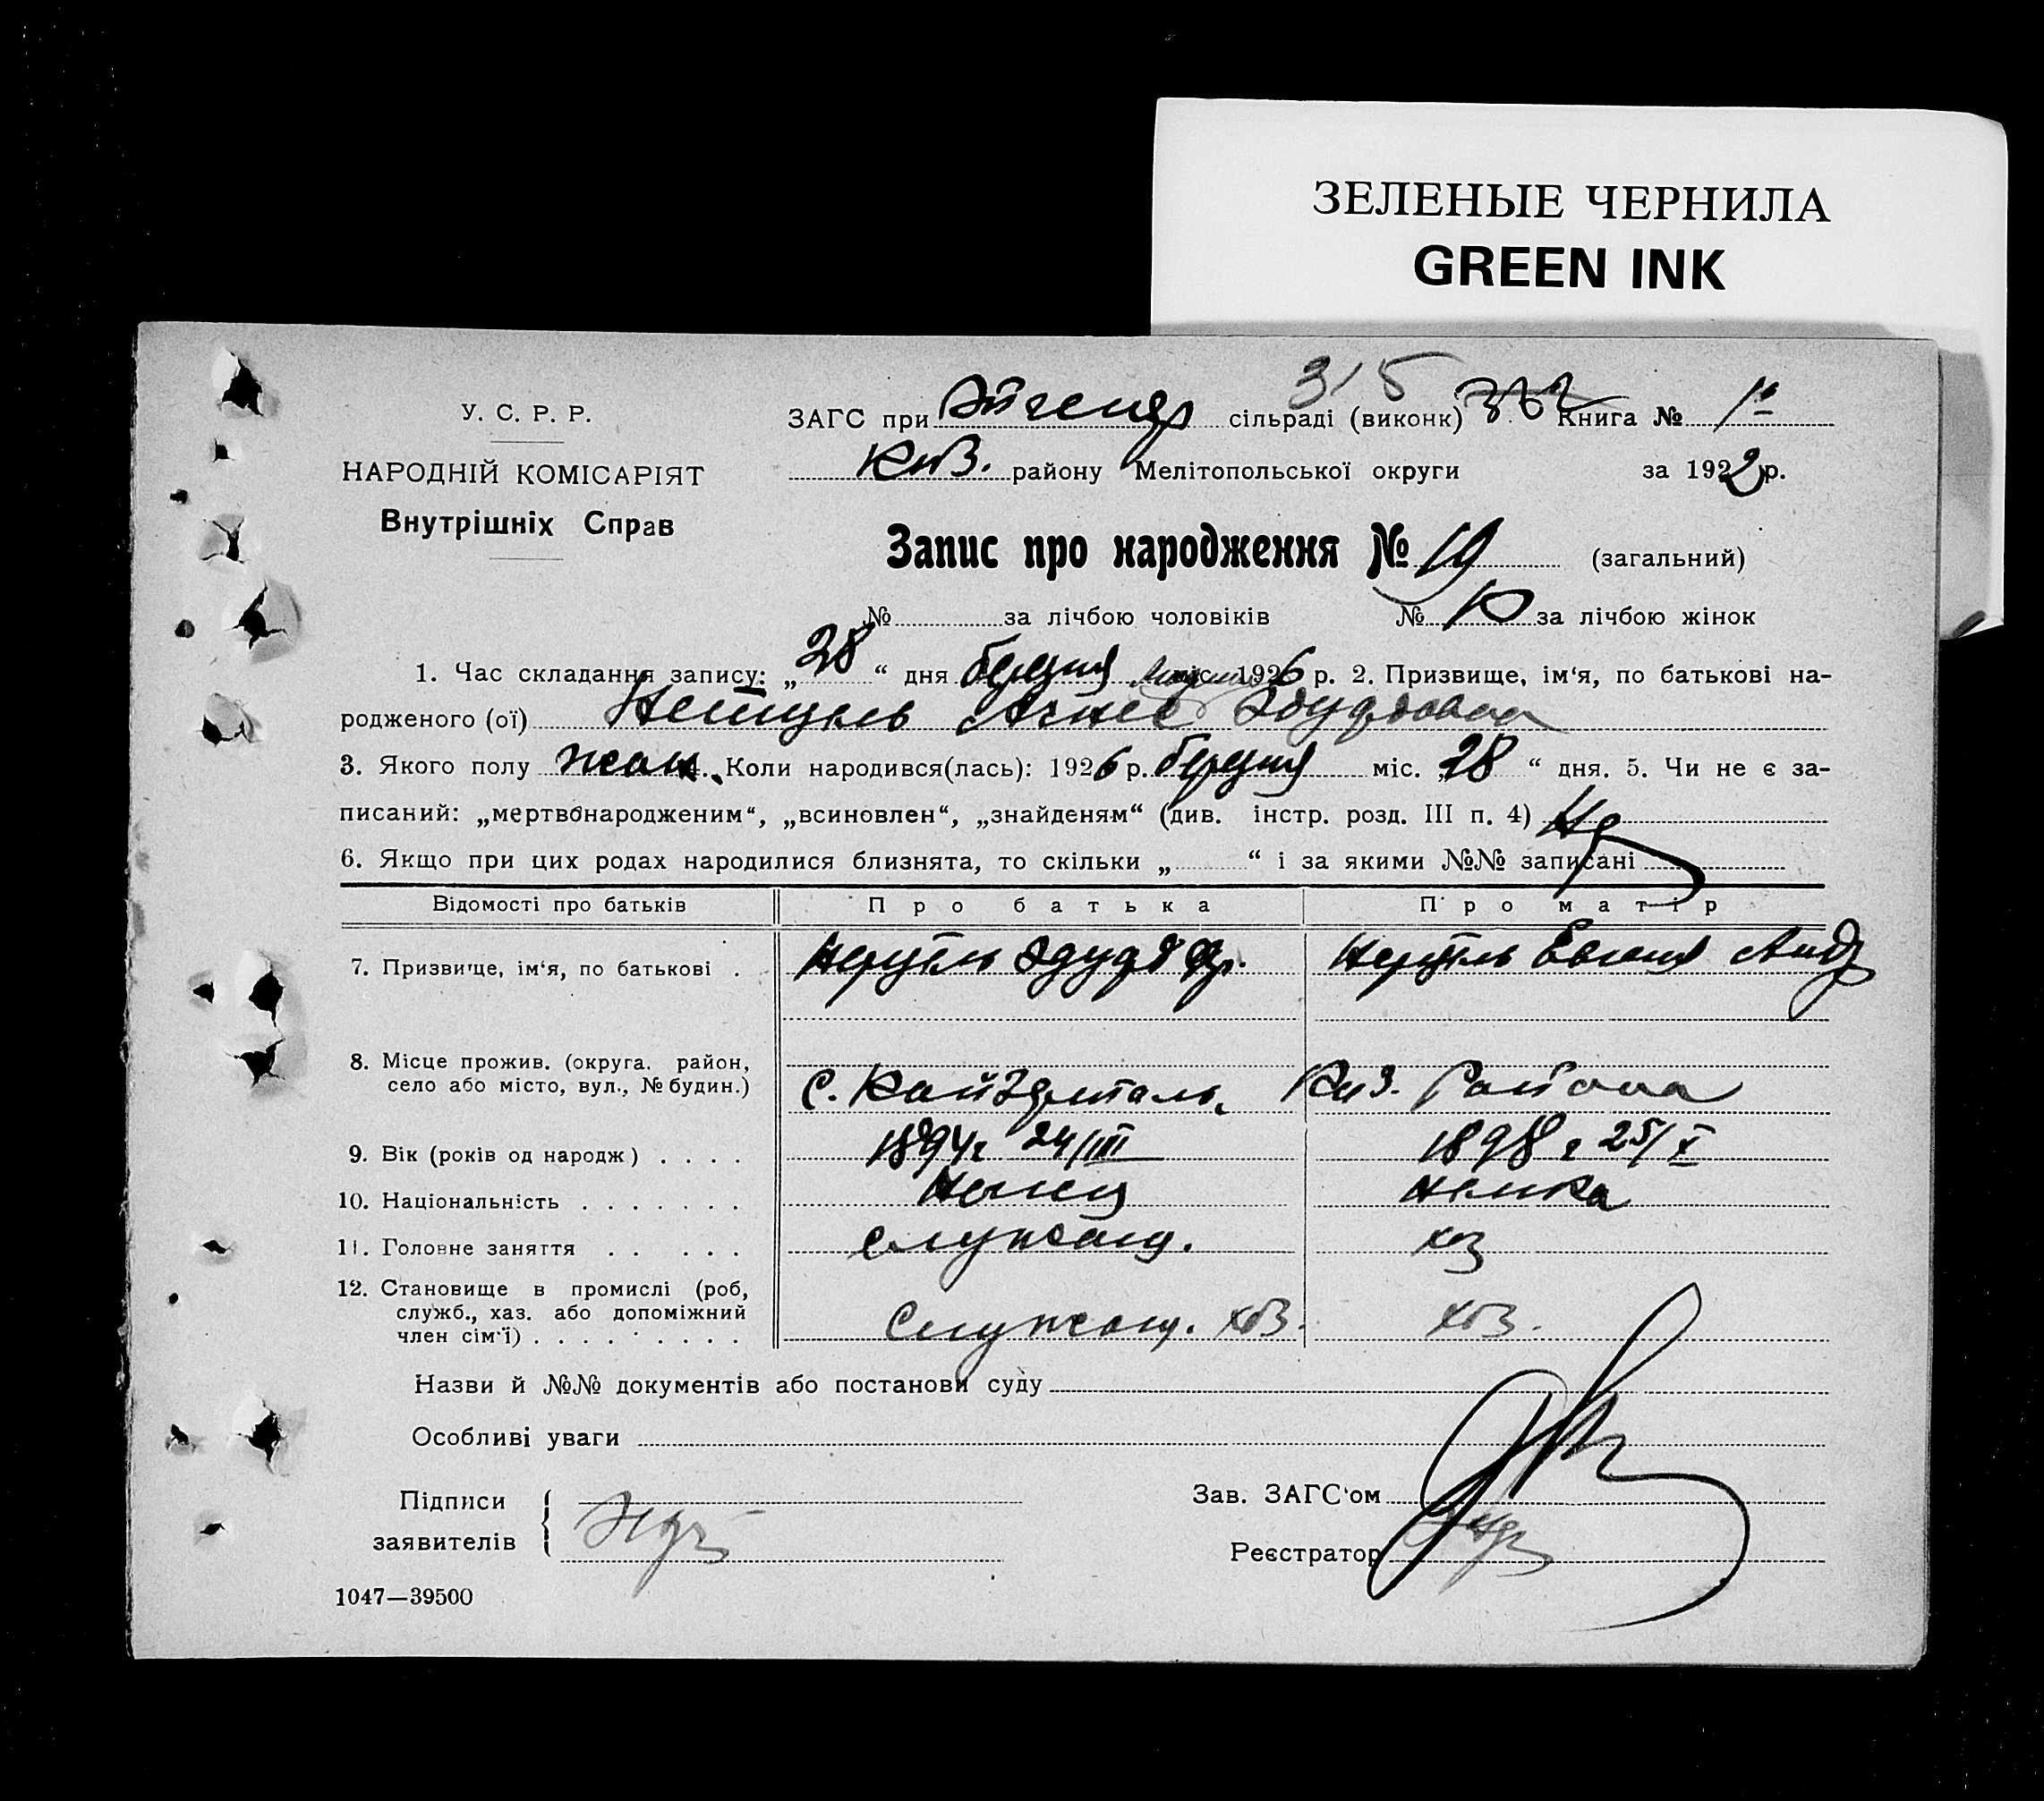 ЗЕЛЕНЫЕ ЧЕРНИЛА
GREEN INK
315
У. С. Р. Р.
ЗАГС при Эйгенф сільраді (виконк) Книга № 1
НАРОДНІЙ КОМІСАРІЯТ
Внутрішніх Справ
района Мелітопольської округи за 192 р.
Запис про народження № 19 (загальний)
№ за лічбою чоловіків № 10 за лічбою жінок
1. Час складання запису: „28“ дня березня міс. 1926 р. 2. Призвище, ім‘я, по батькові на-
родженого (ої) Агнес Эдуардовна
3. Якого полу жон 4. Коли народився(лась): 1926 р. березня міс. „28“ дня. 5. Чи не є за-
писаний: „мертвонародженим“, „всиновлен“, „знайденям“ (див. інстр. розд. III п. 4) Не
6. Якщо при цих родах народилися близнята, то скільки „ “ і за якими №№ записані
Відомості про батьків Про батька Про матір
7. Призвище, ім‘я, по батькові . Евгения Андр
8. Місце прожив. (округа. район,
село або місто, вул., № будин.) С. Кайзерталь. района
9. Вік (років од народж) . . . . 1894 г 24/III 1898 г 25/X
10. Національність . . . . . . . Немец Немка
11. Головне заняття . . . . . служащ. хоз
12. Становище в промислі (роб,
служб., хаз. або допоміжний
член сім‘ї) . . . . . . . . . Служащ. хоз. хоз.
Назви й №№ документів або постанови суду
Особливі уваги
Підписи
заявителів
Зав. ЗАГС‘ом
Реєстратор
1047—39500